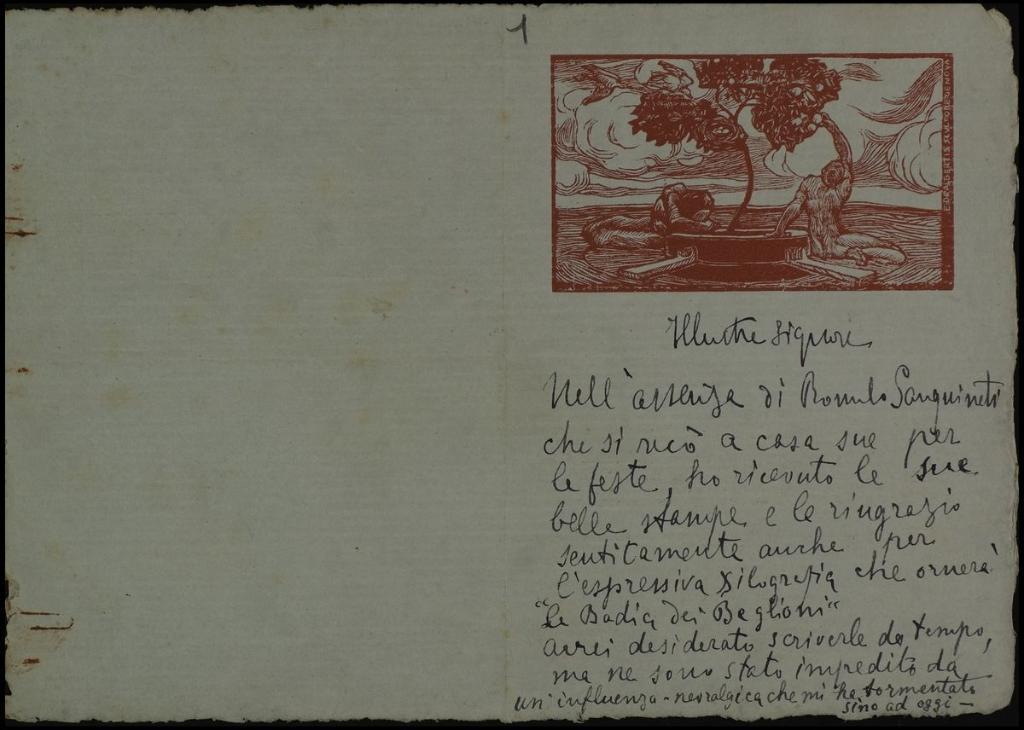 1
Illustre Signore
Nell'assenza di Romulo Sanguineti
che si recò a casa sua per
le feste, ho ricevuto le sue
belle stampe e le ringrazio
sentitamente anche per
l'espressiva xilografia che ornerà
"la Badia dei Baglioni"
avrei desiderato scriverle da tempo,
ma ne sono stato impedito da
un'influenza-nevralgica che mi ha tormentato
sino ad oggi —